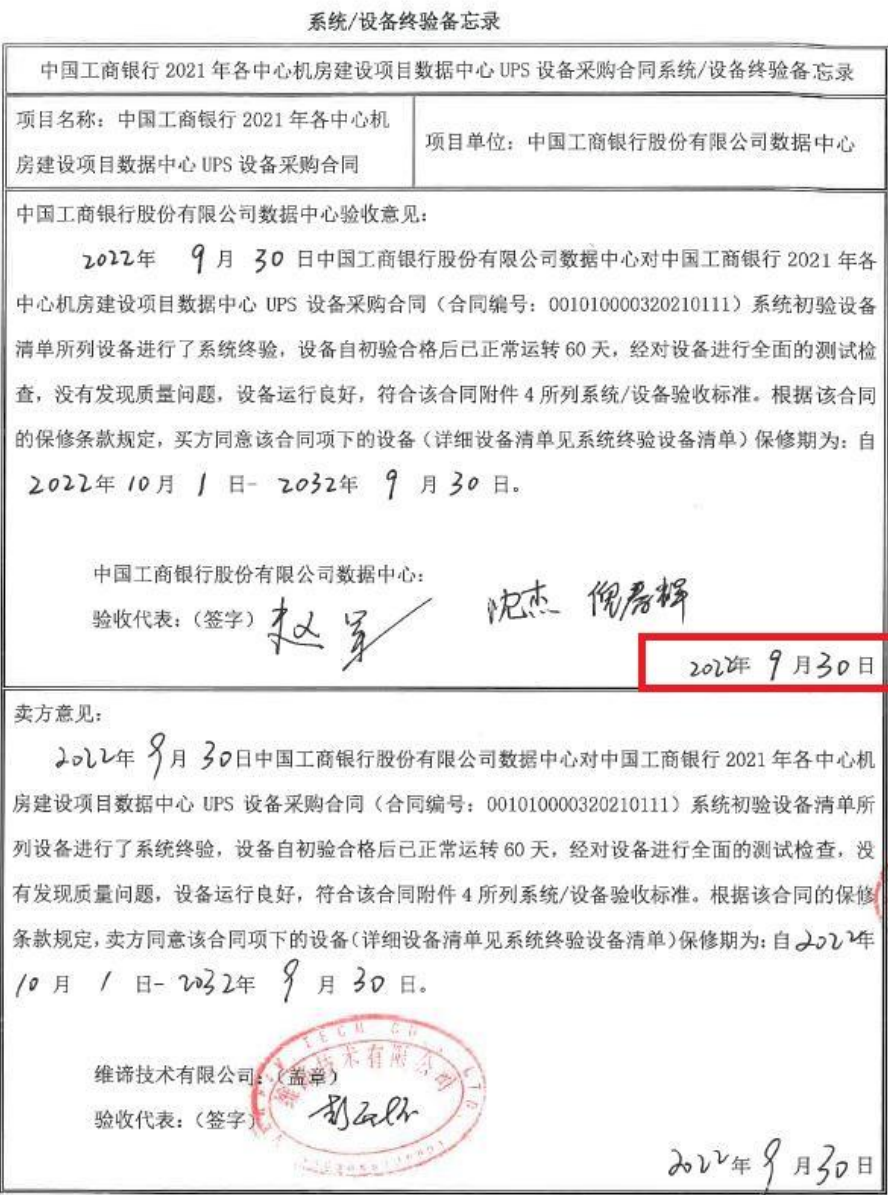 系统/设备终验备忘录
中国工商银行 2021 年各中心机房建设项目数据中心 UPS 设备采购合同系统/设备终验备忘录
项目名称：中国工商银行 2021 年各中心机
房建设项目数据中心 UPS 设备采购合同
项目单位：中国工商银行股份有限公司数据中心
中国工商银行股份有限公司数据中心验收意见：
2022年 9 月 30 日中国工商银行股份有限公司数据中心对中国工商银行 2021 年各
中心机房建设项目数据中心 UPS 设备采购合同（合同编号：001010000320210111）系统初验设备
清单所列设备进行了系统终验，设备自初验合格后已正常运转 60 天，经对设备进行全面的测试检
查，没有发现质量问题，设备运行良好，符合该合同附件 4 所列系统/设备验收标准。根据该合同
的保修条款规定，买方同意该合同项下的设备（详细设备清单见系统终验设备清单）保修期为：自
2022年 10 月 1 日- 2032年 9 月 30 日。
中国工商银行股份有限公司数据中心：
验收代表：（签字） 赵军 沈杰
2022年 9 月 30 日
卖方意见：
2022年 9 月 30 日中国工商银行股份有限公司数据中心对中国工商银行 2021 年各中心机
房建设项目数据中心 UPS 设备采购合同（合同编号：001010000320210111）系统初验设备清单所
列设备进行了系统终验，设备自初验合格后已正常运转 60 天，经对设备进行全面的测试检查，没
有发现质量问题，设备运行良好，符合该合同附件 4 所列系统/设备验收标准。根据该合同的保修
条款规定，卖方同意该合同项下的设备（详细设备清单见系统终验设备清单）保修期为：自 2022年
10 月 1 日- 2032年 9 月 30 日。
维谛技术有限公司：（盖章）
维谛技术有限公司
验收代表：（签字）
2022年 9 月 30 日